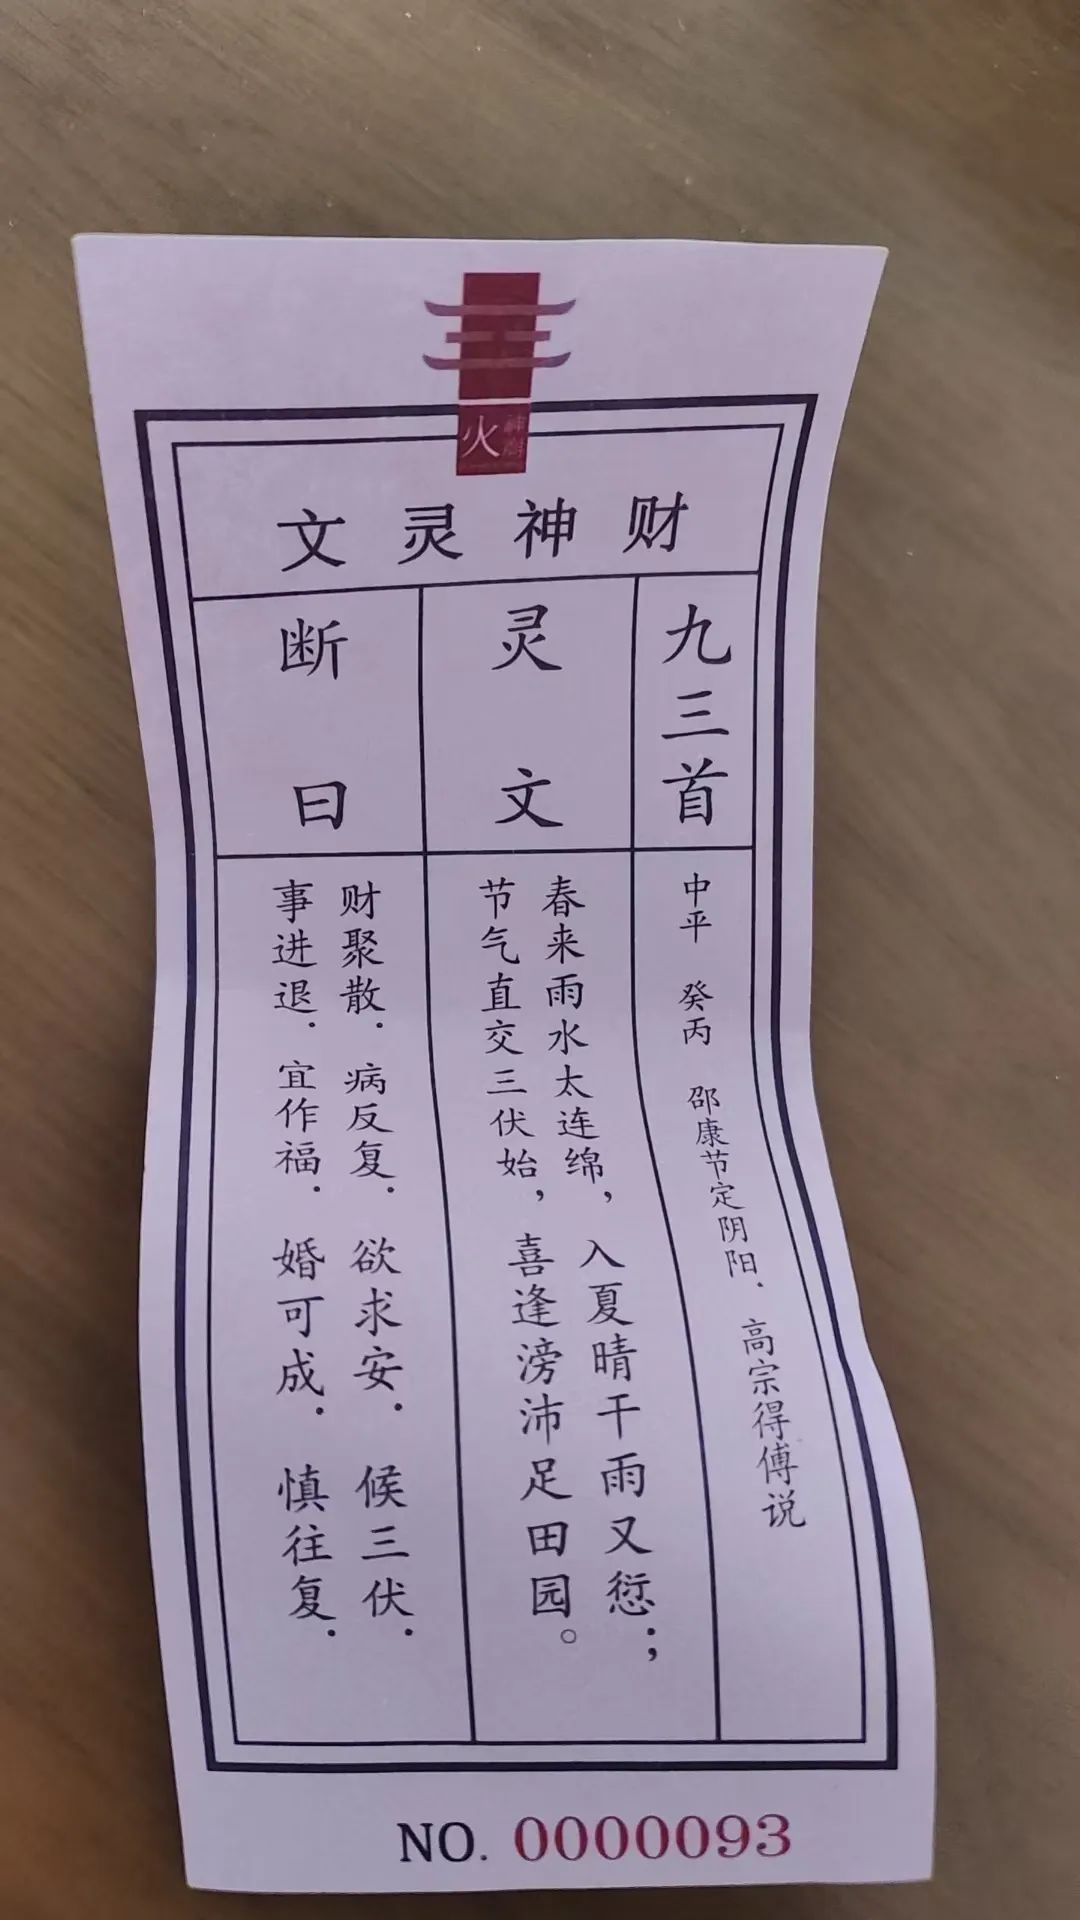 火
财神灵文
九三首
中平 癸丙 邵康节定阴阳．高宗得傅说
灵文
春来雨水太连绵，入夏晴干雨又愆；
节气直交三伏始，喜逢滂沛足田园。
断曰
财聚散．病反复．欲求安．候三伏．
事进退．宜作福．婚可成．慎往复．
NO. 0000093